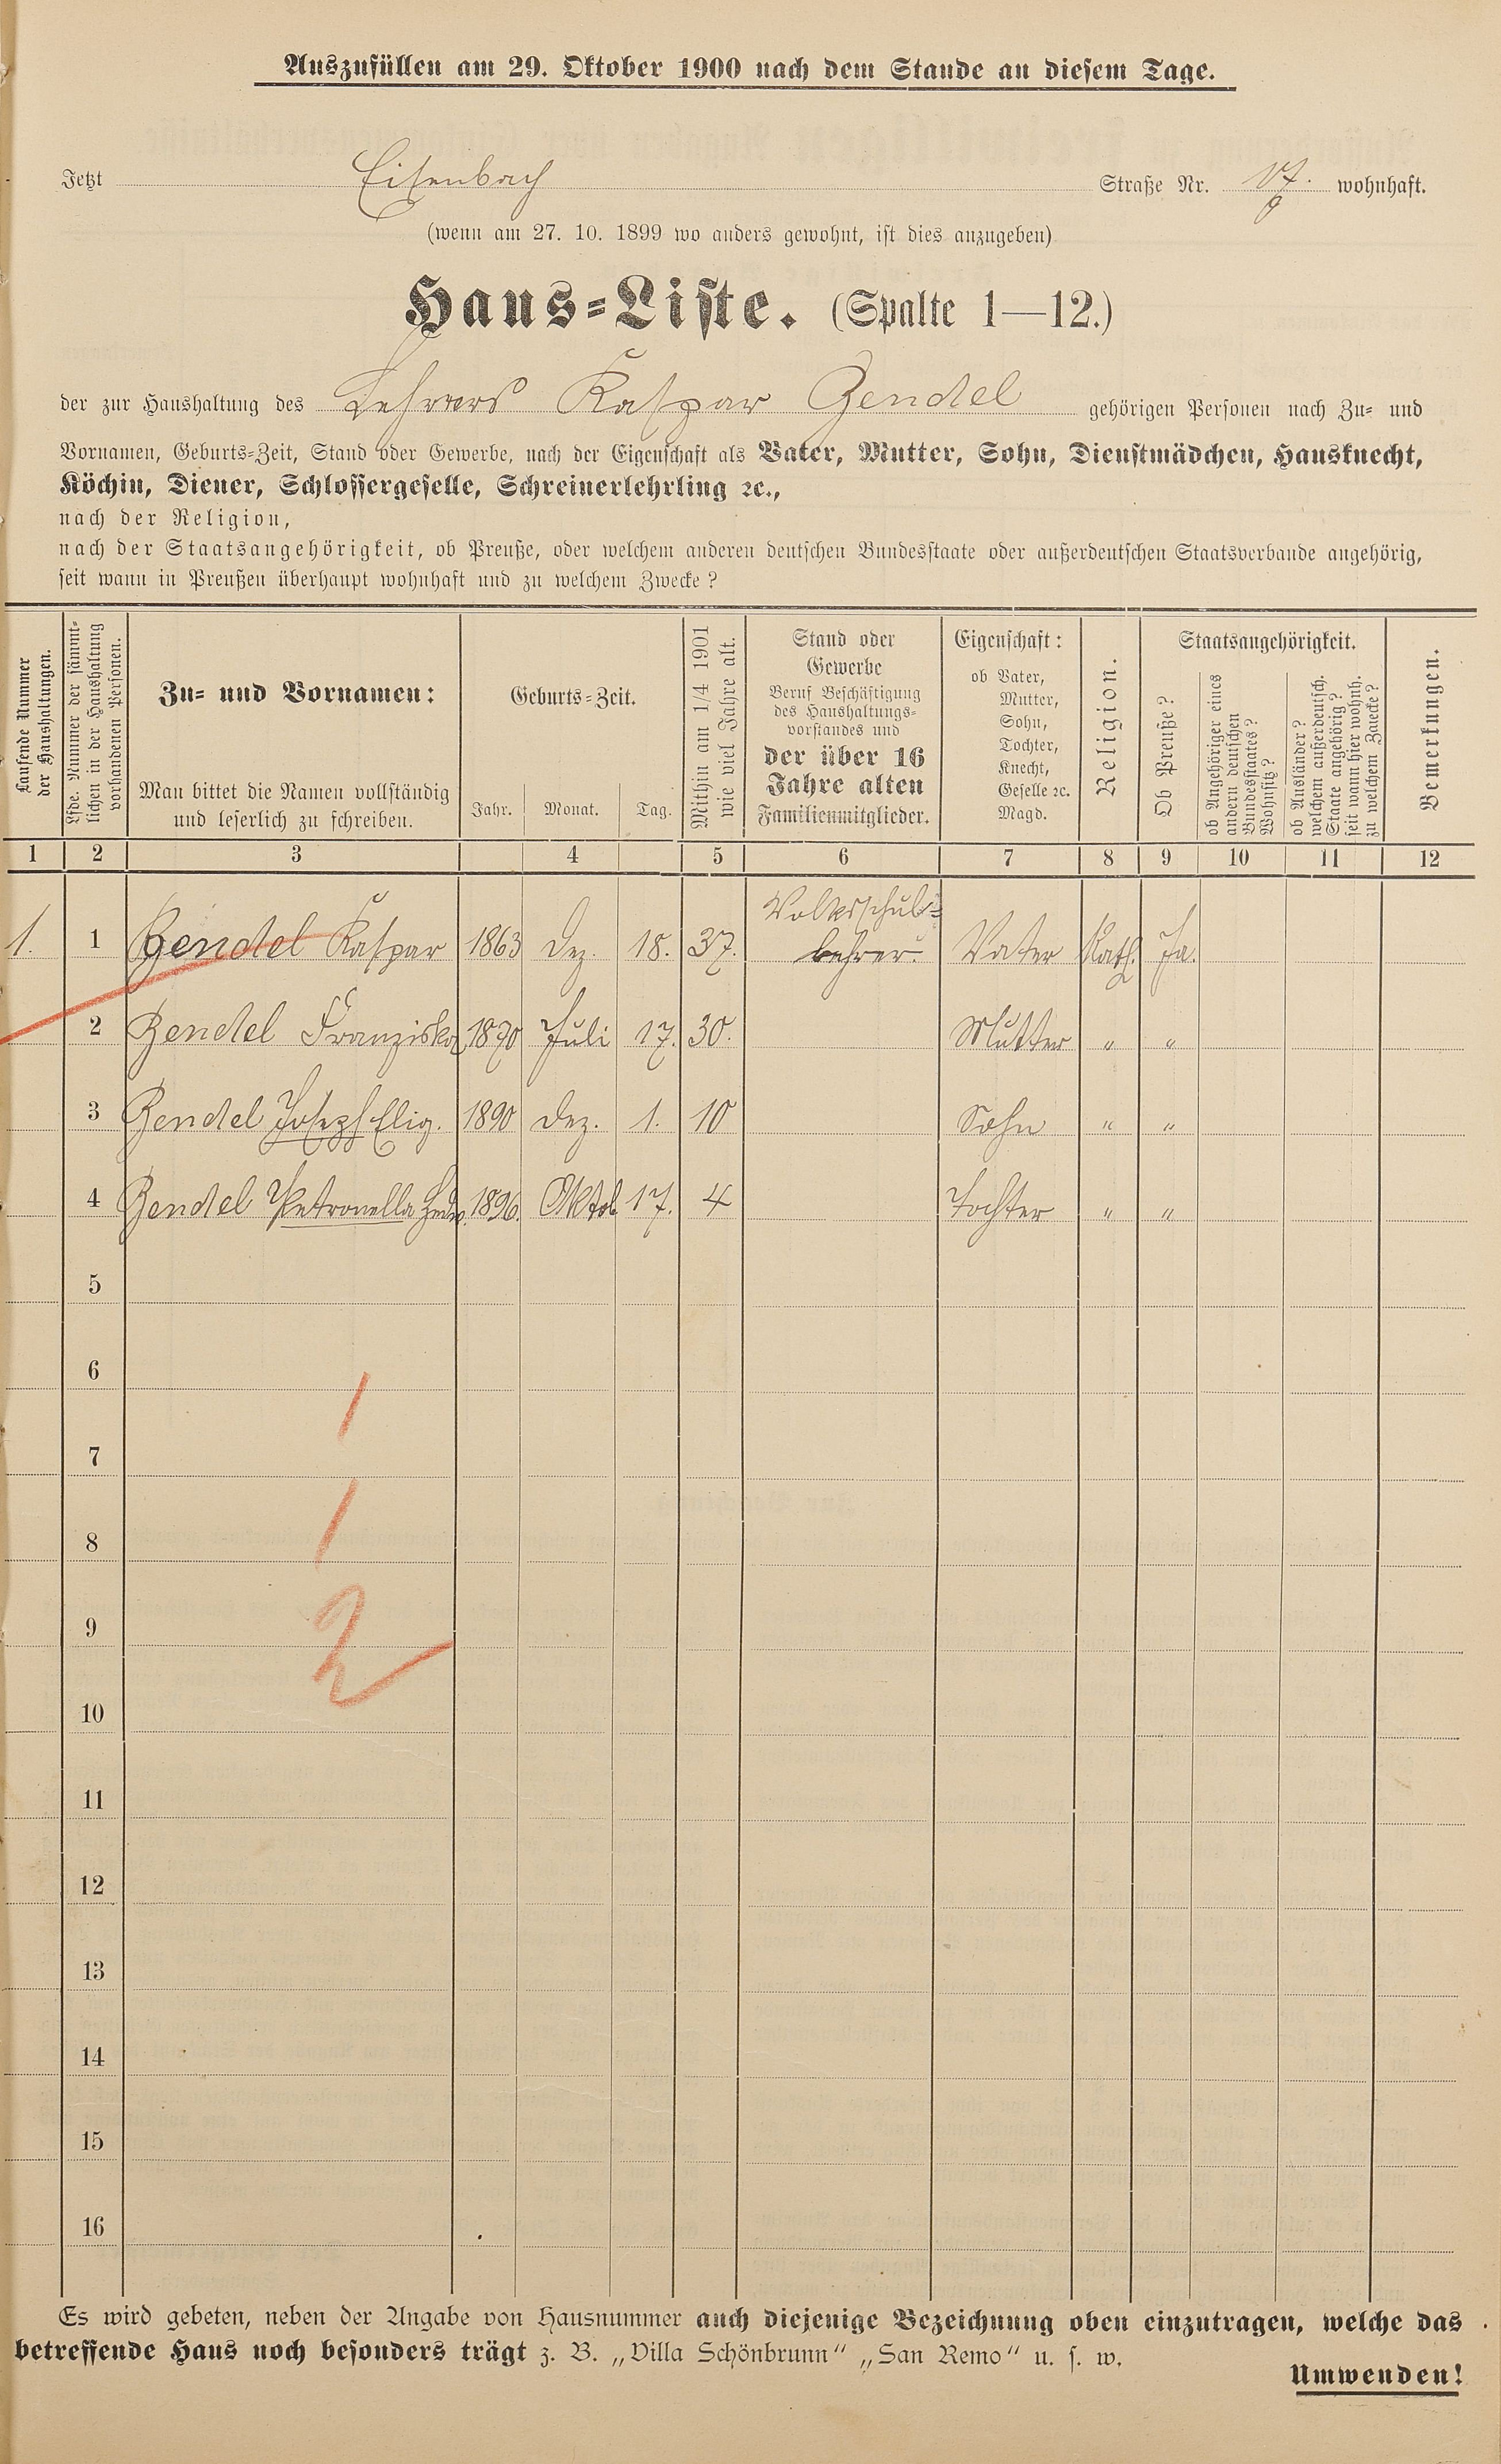 Auszufüllen am 29. Oktober 1900 nach dem Stande an diesem Tage.
Jetzt Eisenbach Straße Nr. 17. wohnhaft.
(wenn am 27. 10. 1899 wo anders gewohnt, ist dies anzugeben)
Haus-Liste. (Spalte 1—12.)
der zur Haushaltung des Lehrers Kaspar Gendel gehörigen Personen nach Zu- und
Vornamen, Geburts-Zeit, Stand oder Gewerbe, nach der Eigenschaft als Vater, Mutter, Sohn, Dienstmädchen, Hausknecht,
Köchin, Diener, Schlossergeselle, Schreinerlehrling ꝛc.,
nach der Religion,
nach der Staatsangehörigkeit, ob Preuße, oder welchem anderen deutschen Bundesstaate oder außerdeutschen Staatsverbande angehörig,
seit wann in Preußen überhaupt wohnhaft und zu welchem Zwecke?
Laufende Nummer
der Haushaltungen.
Lfde. Nummer der sämmt-
lichen in der Haushaltung
vorhandenen Personen.
Zu- und Vornamen:
Man bittet die Namen vollständig
und leserlich zu schreiben.
Geburts-Zeit.
Jahr. Monat. Tag.
Mithin am 1/4 1901
wie viel Jahre alt.
Stand oder
Gewerbe
Beruf Beschäftigung
des Haushaltungs-
vorstandes und
der über 16
Jahre alten
Familienmitglieder.
Eigenschaft:
ob Vater,
Mutter,
Sohn,
Tochter,
Knecht,
Geselle ꝛc.
Magd.
Religion.
Staatsangehörigkeit.
Ob Preuße?
ob Angehöriger eines
andern deutschen
Bundesstaates?
Wohnsitz?
ob Ausländer?
welchem außerdeutsch.
Staate angehörig?
seit wann hier wohnh.
zu welchem Zwecke?
Bemerkungen.
1 2 3 4 5 6 7 8 9 10 11 12
Volksschul-
1. 1 Gendel Kaspar 1863 Dez. 18. 37. lehrer. Vater Kath. Ja.
2 Gendel Franziska 1870 Juli 17. 30. Mutter " "
3 Gendel Joseph Elig. 1890 Dez. 1. 10 Sohn " "
4 Gendel Petronella Hedw. 1896. Oktob. 17. 4 Tochter " "
5
6
1
7
1
8
9
2
10
11
12
13
14
15
16
Es wird gebeten, neben der Angabe von Hausnummer auch diejenige Bezeichnung oben einzutragen, welche das
betreffende Haus noch besonders trägt z. B. „Villa Schönbrunn“ „San Remo“ u. s. w.
Umwenden!